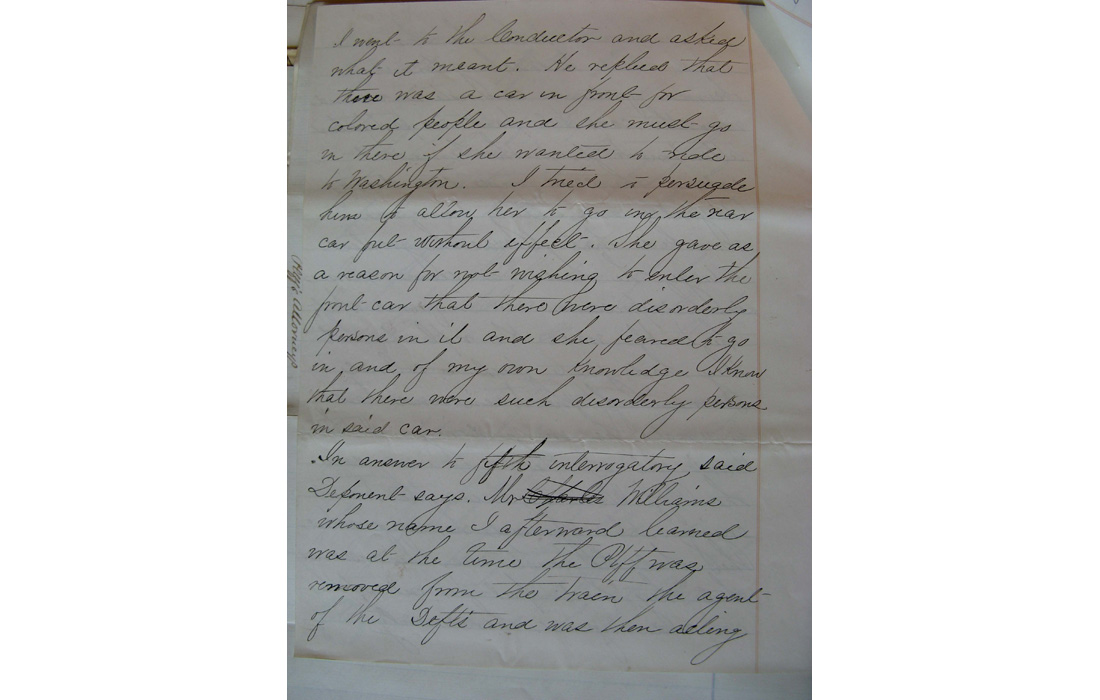 I went to the Conductor and asked
what it meant. He replied that
there was a car in front for
colored people and she must go
in there if she wanted to ride
to Washington. I tried to persuade
him to allow her to go in the rear
car but without effect. She gave as
a reason for not wishing to enter the
front car that there were disorderly
persons in it and she feared to go
in and of my own knowledge I know
that there were such disorderly persons
in said car.
In answer to fifth interrogatory said
Deponent says. Mr Charles Williams
whose name I afterward learned
was at the time the Plff was
removed from the train the agent
of the Defts and was then acting
Attorneys